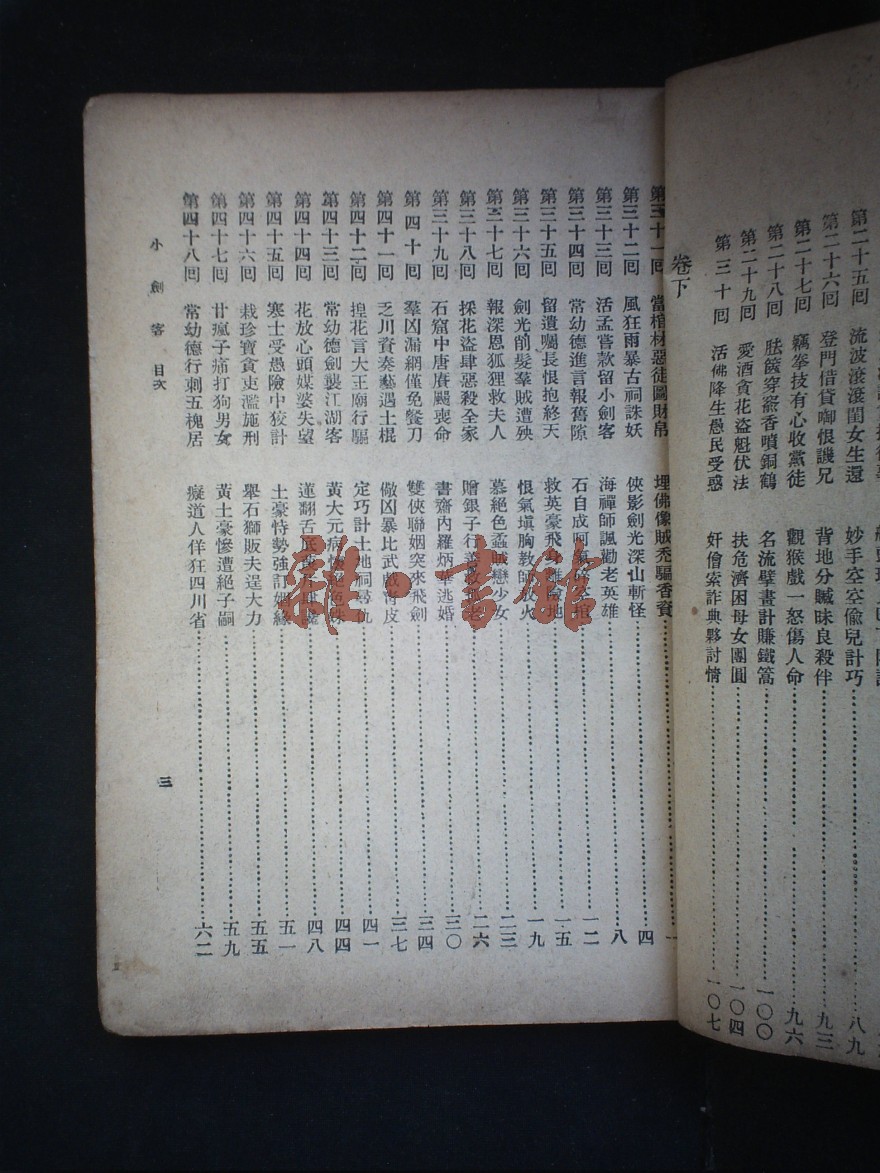 第二十五回 流波滾滾閨女生還 妙手空空偸兒計巧 八九
第二十六回 登門借貸啣恨譏兄 背地分贓昧良殺伴 九三
第二十七回 竊拳技有心收黨徒 觀猴戲一怒傷人命 九六
第二十八回 胠篋穿窬香噴銅鶴 名流擘畫計賺鐵篙 一〇〇
第二十九回 愛酒貪花盜魁伏法 扶危濟困母女團圓 一〇四
第三十回 活佛降生愚民受惑 奸僧索詐典夥討情 一〇七
卷下
第三十一回 當棺材惡徒圖財帛 埋佛像賊禿騙香資 一
第三十二回 風狂雨暴古祠誅妖 俠影劍光深山斬怪 四
第三十三回 活孟嘗款留小劍客 海禪師諷勸老英雄 八
第三十四回 常幼德進言報舊隙 石自成阿棺 一二
第三十五回 留遺囑長恨抱終天 救英豪飛身離險地 一五
第三十六回 劍光削髮羣賊遭殃 恨氣塡胸敎師放火 一九
第三十七回 報深恩狐狸救夫人 慕絕色蟊賊戀少女 二三
第三十八回 採花盜肆惡殺全家 贈銀子行善老 二六
第三十九回 石窟中唐賡颺喪命 書齋內羅炳華逃婚 三〇
第四十回 羣凶漏網僅免餐刀 雙俠聯姻突來飛劍 三四
第四十一回 乏川資奏藝遇土棍 儆凶暴比武戲靑皮 三七
第四十二回 揑花言大王廟行騙 定巧計土地祠尋仇 四一
第四十三回 常幼德劍襲江湖客 黃大元病 四四
第四十四回 花放心頭媒婆失望 蓮翻舌底 四八
第四十五回 寒士受愚險中狡計 土豪恃勢強訂姻緣 五一
第四十六回 栽珍寶貪吏濫施刑 舉石獅販夫逞大力 五五
第四十七回 廿瘋子痛打狗男女 黃土豪慘遭絕子嗣 五九
第四十八回 常幼德行刺五槐居 癡道人佯狂四川省 六二
小劍客 目次
三
雜·書館